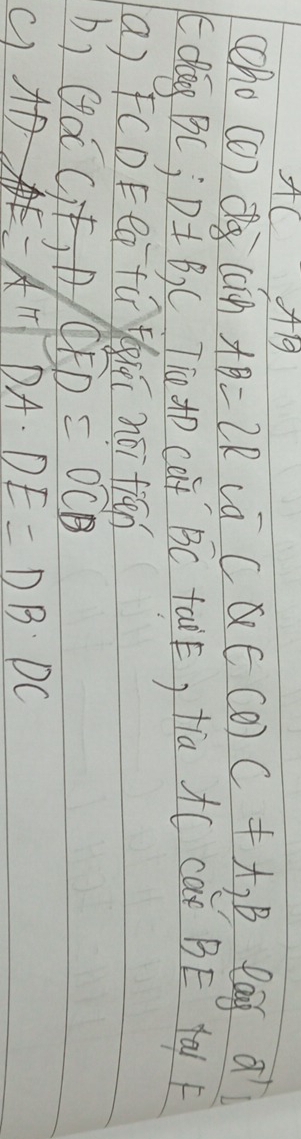 AC
AB
Cho (O) đg` kính AB = 2R và C ∈ (O) C ≠ A, B lấy
∈ dây BC; D ≠ B, C Tia AD cắt BC tại E, tia AC cắt BE tại F
a) FCDE là tứ giác nội tiếp
b) CFD = OCB
c) DA. DE = DB. DC